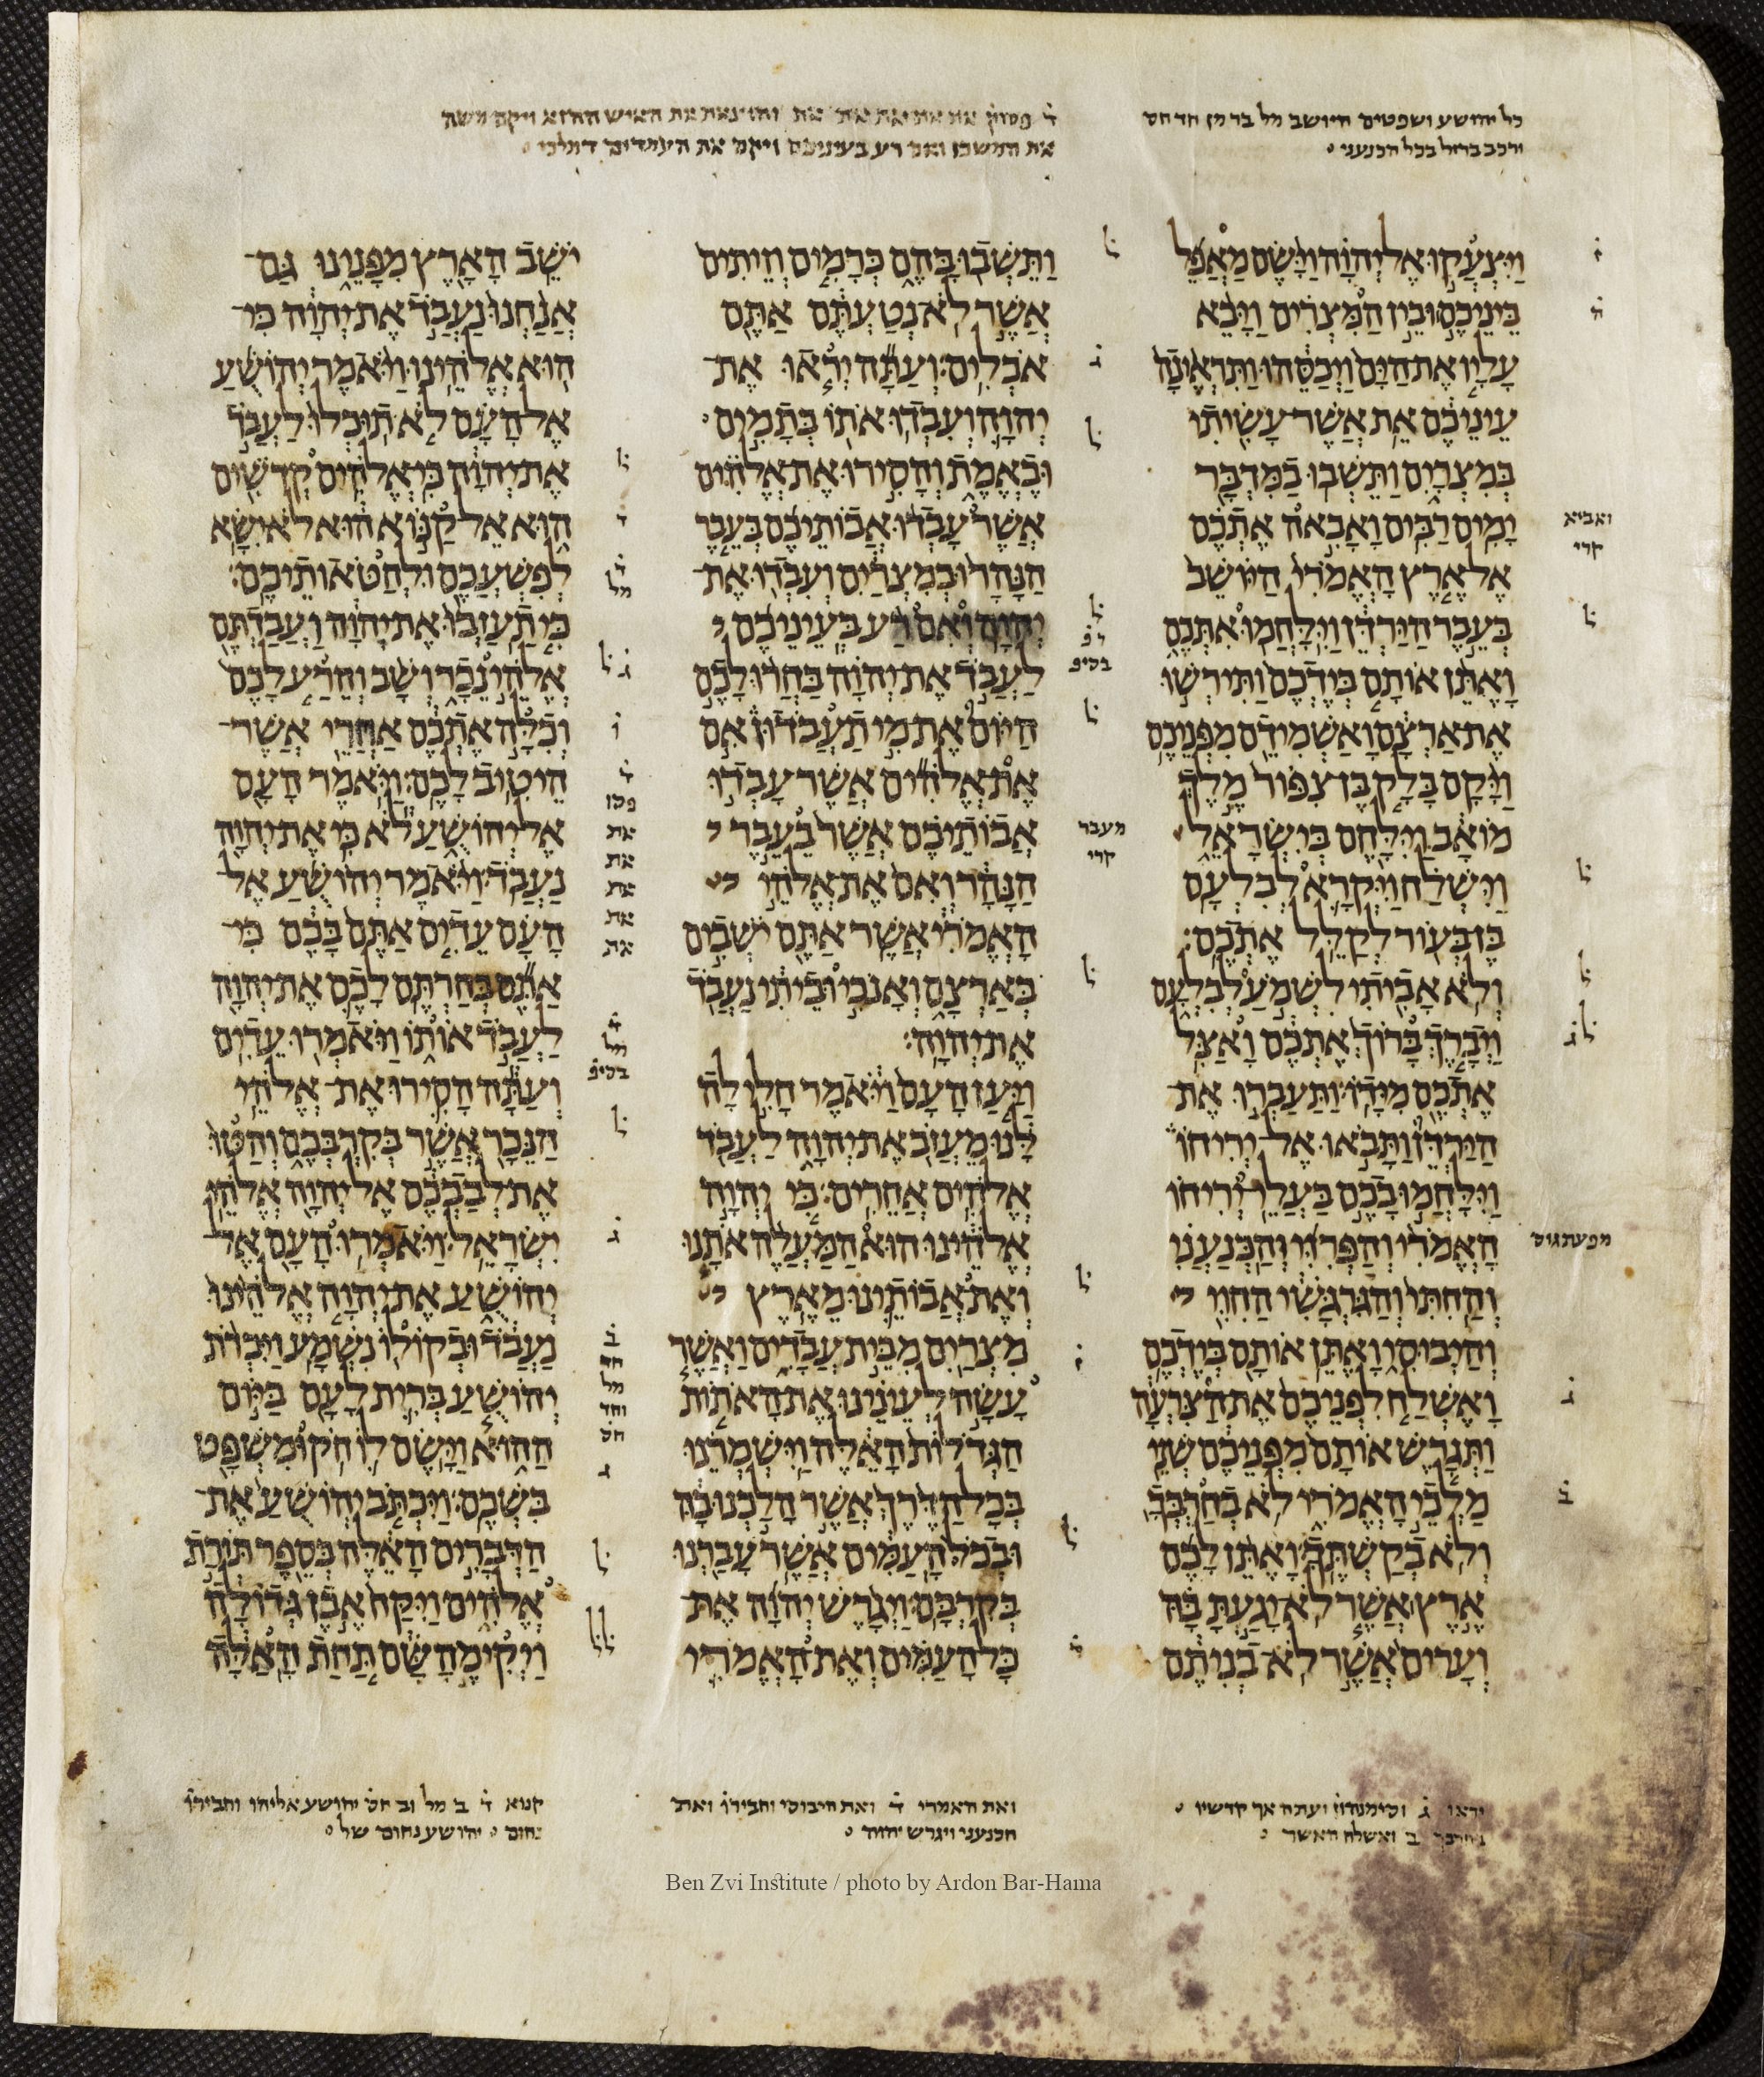 כל יהושע ושפטים היושב מל בר מן חד חס
ורכב ברזל בכל הכנעני
ד פסוק את את את את את והוצאת את האיש ההוא ויקח משה
את המשכן ואם רע בעיניכם ויקם את העמדים דמלכי
וַיִּצְעֲקוּ אֶל יְהוָה וַיָּשֶׂם מַאֲפֵל
בֵּינֵיכֶם וּבֵין הַמִּצְרִים וַיָּבֵא
עָלָיו אֶת הַיָּם וַיְכַסֵּהוּ וַתִּרְאֶינָה
עֵינֵיכֶם אֵת אֲשֶׁר עָשִׂיתִי
בְּמִצְרָיִם וַתֵּשְׁבוּ בַמִּדְבָּר
יָמִים רַבִּים וָאָבִאה אֶתְכֶם
אֶל אֶרֶץ הָאֱמֹרִי הַיּוֹשֵׁב
בְּעֵבֶר הַיַּרְדֵּן וַיִּלָּחֲמוּ אִתְּכֶם
וָאֶתֵּן אוֹתָם בְּיֶדְכֶם וַתִּירְשׁוּ
אֶת אַרְצָם וָאַשְׁמִידֵם מִפְּנֵיכֶם
וַיָּקָם בָּלָק בֶּן צִפּוֹר מֶלֶךְ
מוֹאָב וַיִּלָּחֶם בְּיִשְׂרָאֵל
וַיִּשְׁלַח וַיִּקְרָא לְבִלְעָם
בֶּן בְּעוֹר לְקַלֵּל אֶתְכֶם׃
וְלֹא אָבִיתִי לִשְׁמֹעַ לְבִלְעָם
וַיְבָרֶךְ בָּרוֹךְ אֶתְכֶם וָאַצִּל
אֶתְכֶם מִיָּדוֹ׃ וַתַּעַבְרוּ אֶת
הַיַּרְדֵּן וַתָּבֹאוּ אֶל יְרִיחוֹ
וַיִּלָּחֲמוּ בָכֶם בַּעֲלֵי יְרִיחוֹ
הָאֱמֹרִי וְהַפְּרִזִּי וְהַכְּנַעֲנִי
וְהַחִתִּי וְהַגִּרְגָּשִׁי הַחִוִּי
וְהַיְבוּסִי וָאֶתֵּן אוֹתָם בְּיֶדְכֶם
וָאֶשְׁלַח לִפְנֵיכֶם אֶת הַצִּרְעָה
וַתְּגָרֶשׁ אוֹתָם מִפְּנֵיכֶם שְׁנֵי
מַלְכֵי הָאֱמֹרִי לֹא בְחַרְבְּךָ
וְלֹא בְקַשְׁתֶּךָ׃ וָאֶתֵּן לָכֶם
אֶרֶץ אֲשֶׁר לֹא יָגַעְתָּ בָּהּ
וְעָרִים אֲשֶׁר לֹא בְנִיתֶם
ואביא
קרי
מפעתגוס
וַתֵּשְׁבוּ בָּהֶם כְּרָמִים וְזֵיתִים
אֲשֶׁר לֹא נְטַעְתֶּם אַתֶּם
אֹכְלִים׃ וְעַתָּה יְראוּ אֶת־
יְהוָה וְעִבְדוּ אֹתוֹ בְּתָמִים
וּבֶאֱמֶת וְהָסִירוּ אֶת אֱלֹהִים
אֲשֶׁר עָבְדוּ אֲבוֹתֵיכֶם בְּעֵבֶר
הַנָּהָר וּבְמִצְרַיִם וְעִבְדוּ אֶת־
יְהוָה׃ וְאִם רַע בְּעֵינֵיכֶם
לַעֲבֹד אֶת יְהוָה בַּחֲרוּ לָכֶם
הַיּוֹם אֶת מִי תַעֲבֹדוּן אִם
אֶת אֱלֹהִים אֲשֶׁר עָבְדוּ
אֲבוֹתֵיכֶם אֲשֶׁר בְּעֵבֶר
הַנָּהָר וְאִם אֶת אֱלֹהֵי
הָאֱמֹרִי אֲשֶׁר אַתֶּם יֹשְׁבִים
בְּאַרְצָם וְאָנֹכִי וּבֵיתִי נַעֲבֹד
אֶת יְהוָה׃
וַיַּעַן הָעָם וַיֹּאמֶר חָלִילָה
לָּנוּ מֵעֲזֹב אֶת יְהוָה לַעֲבֹד
אֱלֹהִים אֲחֵרִים׃ כִּי יְהוָה
אֱלֹהֵינוּ הוּא הַמַּעֲלֶה אֹתָנוּ
וְאֶת אֲבוֹתֵינוּ מֵאֶרֶץ
מִצְרַיִם מִבֵּית עֲבָדִים וַאֲשֶׁר
עָשָׂה לְעֵינֵינוּ אֶת הָאֹתוֹת
הַגְּדֹלוֹת הָאֵלֶּה וַיִּשְׁמְרֵנוּ
בְּכָל הַדֶּרֶךְ אֲשֶׁר הָלַכְנוּ בָהּ
וּבְכֹל הָעַמִּים אֲשֶׁר עָבַרְנוּ
בְּקִרְבָּם׃ וַיְגָרֶשׁ יְהוָה אֶת־
כָּל הָעַמִּים וְאֶת הָאֱמֹרִי
מעבר
קרי
יֹשֵׁב הָאָרֶץ מִפָּנֵינוּ גַּם־
אֲנַחְנוּ נַעֲבֹד אֶת יְהוָה כִּי־
הוּא אֱלֹהֵינוּ׃ וַיֹּאמֶר יְהוֹשֻׁעַ
אֶל הָעָם לֹא תוּכְלוּ לַעֲבֹד
אֶת יְהוָה כִּי אֱלֹהִים קְדֹשִׁים
הוּא אֵל קַנּוֹא הוּא לֹא יִשָּׂא
לְפִשְׁעֲכֶם וּלְחַטֹּאותֵיכֶם׃
כִּי תַעַזְבוּ אֶת יְהוָה וַעֲבַדְתֶּם
אֱלֹהֵי נֵכָר וְשָׁב וְהֵרַע לָכֶם
וְכִלָּה אֶתְכֶם אַחֲרֵי אֲשֶׁר־
הֵיטִיב לָכֶם׃ וַיֹּאמֶר הָעָם
אֶל יְהוֹשֻׁעַ לֹא כִּי אֶת יְהוָה
נַעֲבֹד׃ וַיֹּאמֶר יְהוֹשֻׁעַ אֶל
הָעָם עֵדִים אַתֶּם בָּכֶם כִּי־
אַתֶּם בְּחַרְתֶּם לָכֶם אֶת יְהוָה
לַעֲבֹד אוֹתוֹ וַיֹּאמְרוּ עֵדִים׃
וְעַתָּה הָסִירוּ אֶת־ אֱלֹהֵי
הַנֵּכָר אֲשֶׁר בְּקִרְבְּכֶם וְהַטּוּ
אֶת לְבַבְכֶם אֶל יְהוָה אֱלֹהֵי
יִשְׂרָאֵל׃ וַיֹּאמְרוּ הָעָם אֶל
יְהוֹשֻׁעַ אֶת יְהוָה אֱלֹהֵינוּ
נַעֲבֹד וּבְקוֹלוֹ נִשְׁמָע׃ וַיִּכְרֹת
יְהוֹשֻׁעַ בְּרִית לָעָם בַּיּוֹם
הַהוּא וַיָּשֶׂם לוֹ חֹק וּמִשְׁפָּט
בִּשְׁכֶם׃ וַיִּכְתֹּב יְהוֹשֻׁעַ אֶת־
הַדְּבָרִים הָאֵלֶּה בְּסֵפֶר תּוֹרַת
אֱלֹהִים וַיִּקַּח אֶבֶן גְּדוֹלָה
וַיְקִימֶהָ שָּׁם תַּחַת הָאַלָּה
פסו
את
את
את
את
את
יראו ג וסימנהון ועתה אך קדשיו
ב ואשלח האשר
ואת האמרי ד ואת היבוסי וחבירו ואת
הכנעני ויגרש יהוה
קנוא ד ב מל וב חס יהושע אליהו וחבירו
נחום יהושע נחום של
Ben Zvi Institute / photo by Ardon Bar-Hama